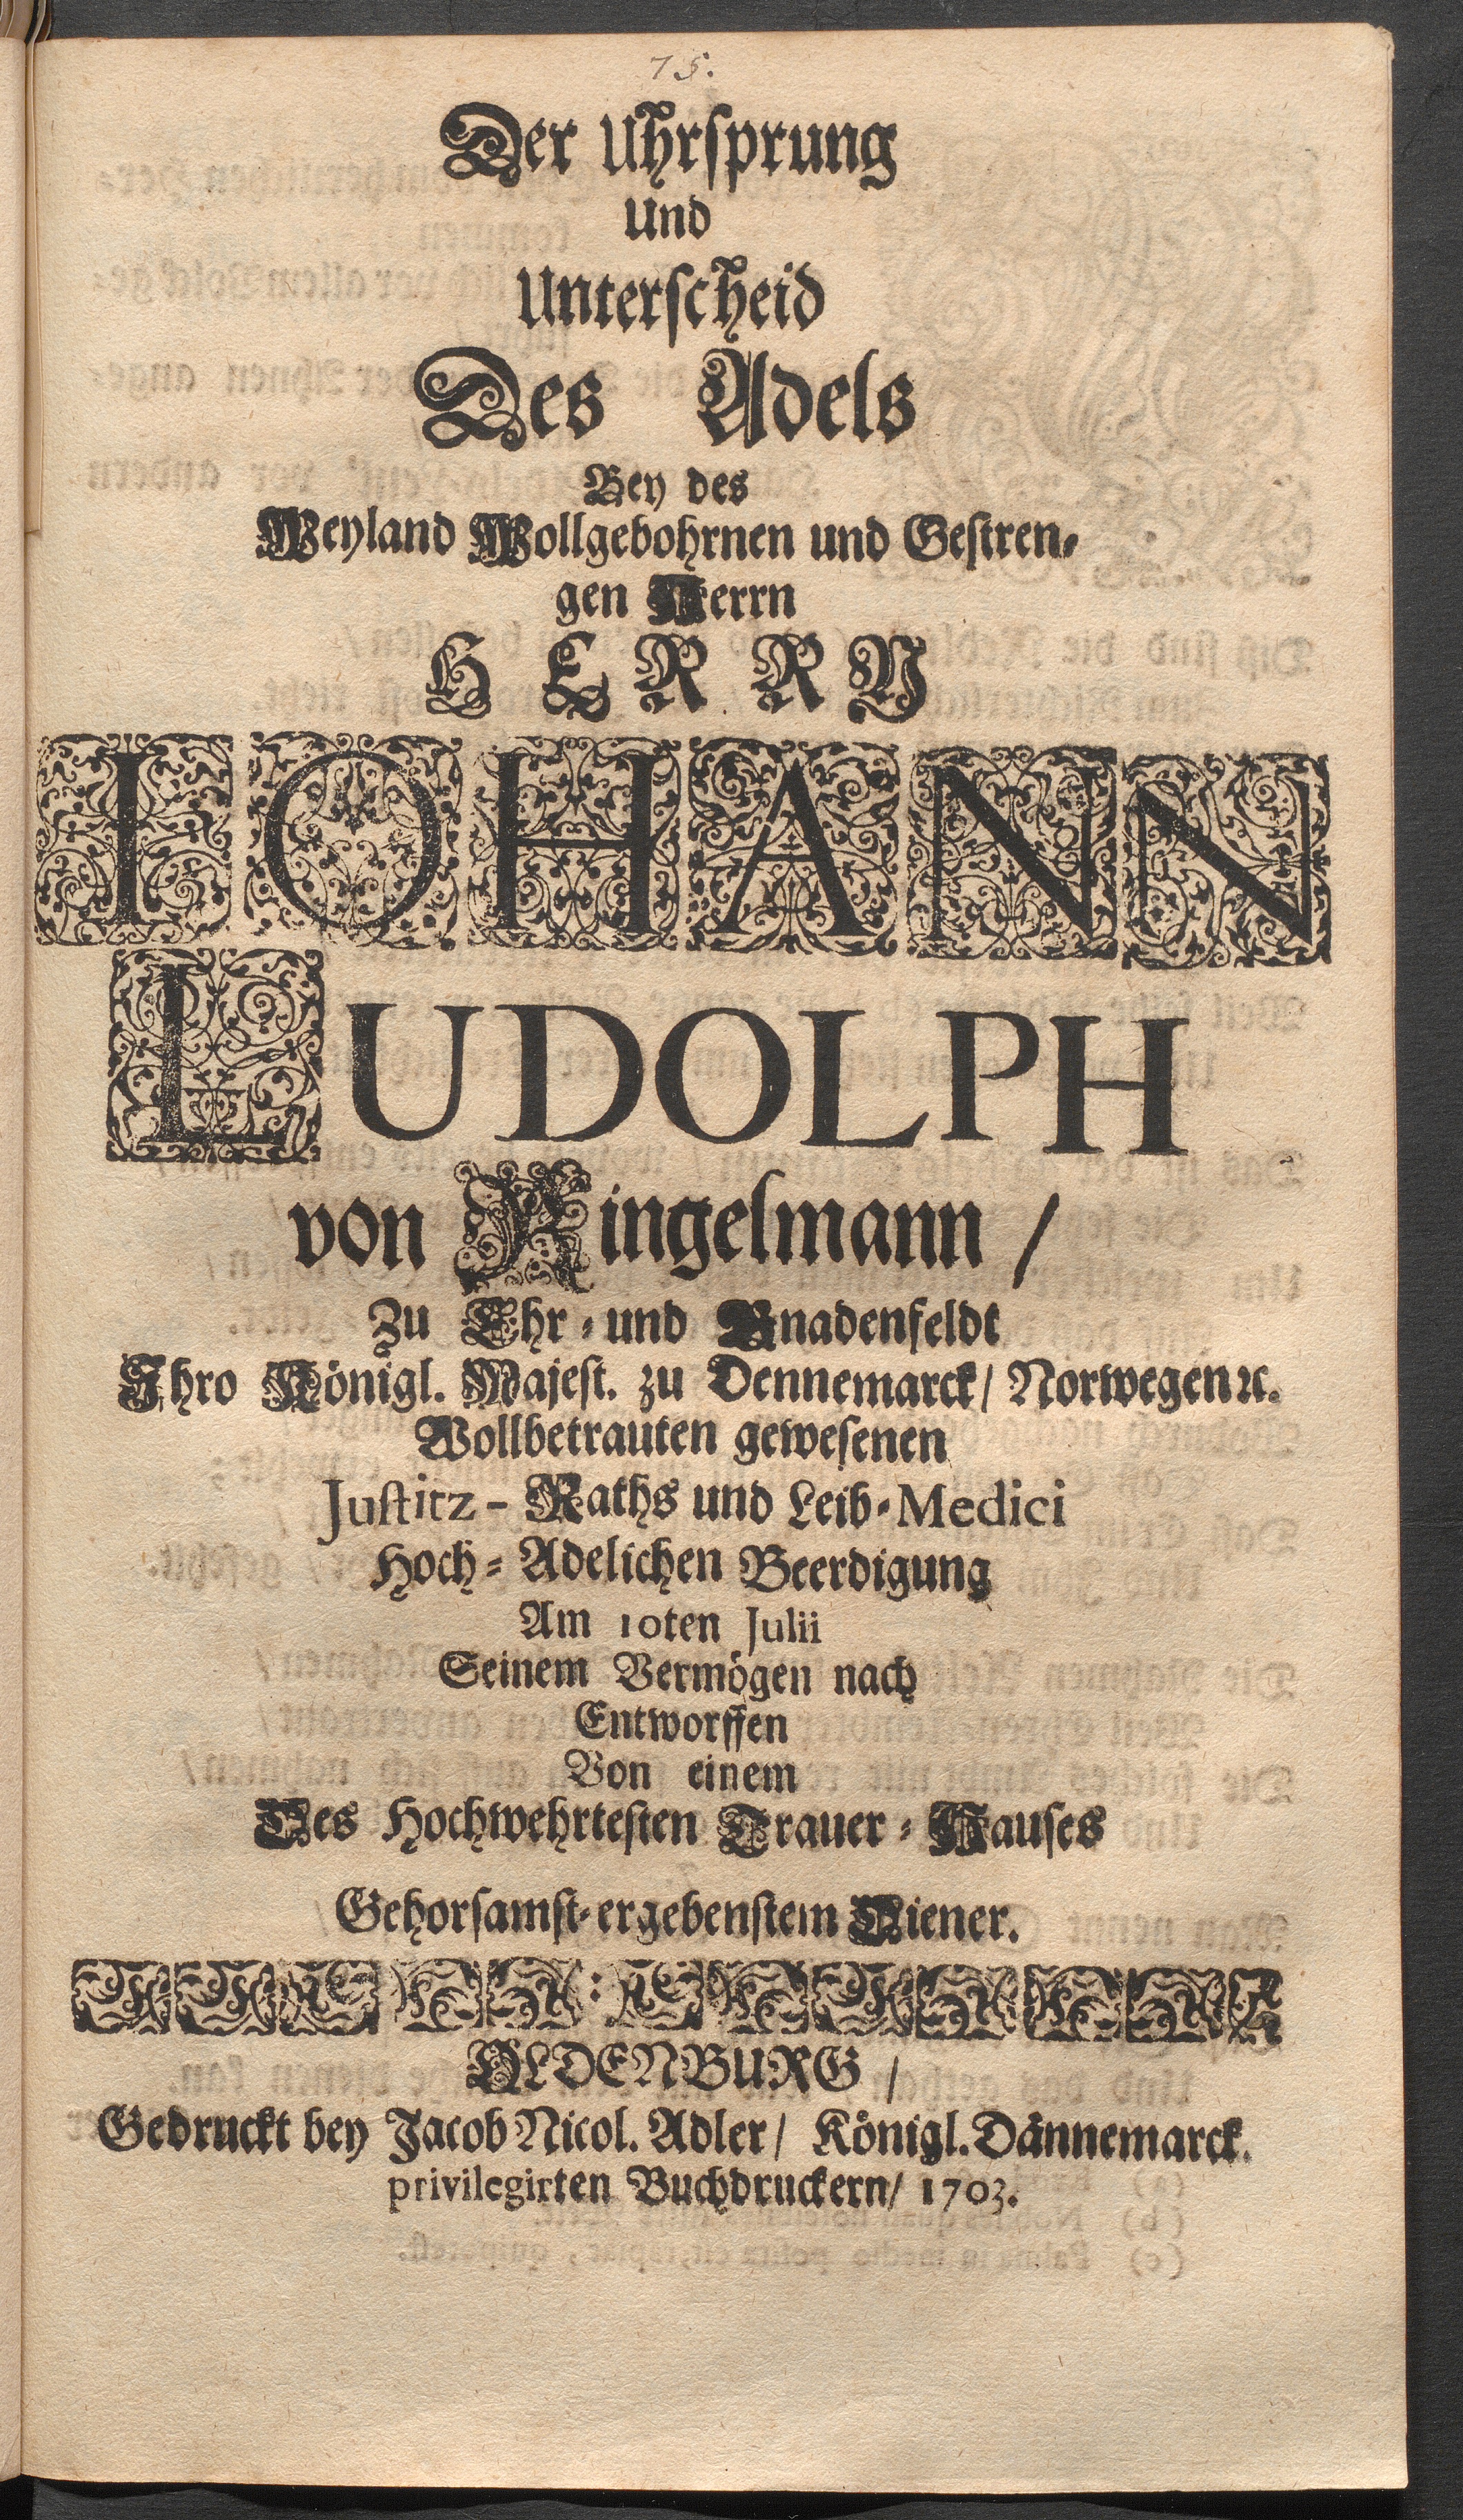 75.
Der Uhrsprung
Und
Unterscheid
Des Adels
Bey des
Weyland Wollgebohrnen und Gestren-
gen Herrn
HERRN
IOHANN
LUDOLPH
von Ringelmann /
Zu Ehr- und Gnadenfeldt
Ihro Königl. Majest. zu Dennemarck / Norwegen ꝛc.
Wollbetrauten gewesenen
Justitz - Raths und Leib-Medici
Hoch-Adelichen Beerdigung
Am 10ten Julii
Seinem Vermögen nach
Entworffen
Von einem
Des Hochwehrtesten Trauer-Hauses
Gehorsamst-ergebenstem Diener.
OLDENBURG /
Gedruckt bey Jacob Nicol. Adler / Königl. Dännemarck.
privilegirten Buchdruckern / 1703.